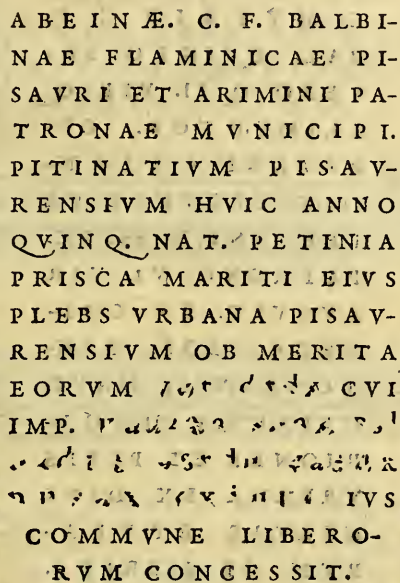 ABEINÆ. C. F. BALBI-
NAE FLAMINICAE PI-
SAVRI ET ARIMINI PA-
TRONAE MVNICIPI.
PITINATIVM PISAV-
RENSIVM HVIC ANNO
QVINQ. NAT. PETINIA
PRISCA MARITI EIVS
PLEBS VRBANA PISAV-
RENSIVM OB MERITA
EORVM CVI
IMP.
IVS
COMMVNE LIBERO-
RVM CONCESSIT.